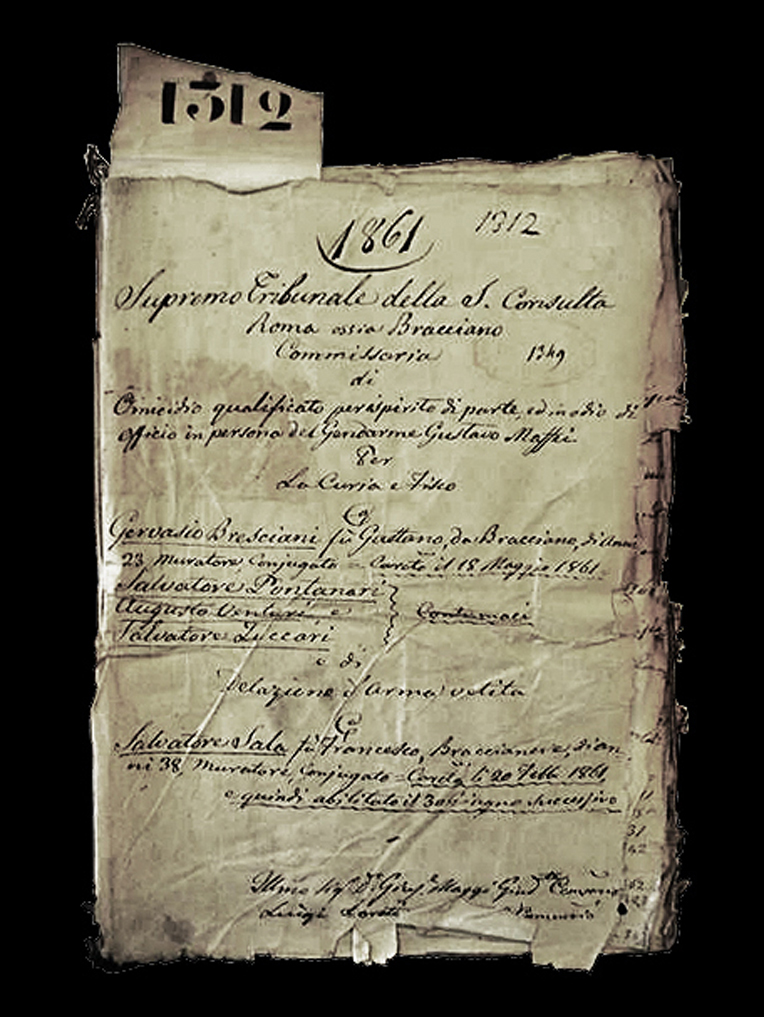 1312
1861 1312
Supremo Tribunale della S. Consulta
Roma ossia Bracciano
Commissaria 1349
di
Omicidio qualificato per ispirito di parte, ed in odio di
officio in persona del Gendarme Gustavo Maffei
Per
La Curia e Fisco
Ca
Gervasio Bresciani fu Gaetano, da Bracciano, di Anni
23 Muratore Conjugato = Carcto il 18 Maggio 1861
Salvatore Pontanari
Augusto Venturi, e Contumaci
Salvatore Zuccari
e di
Delazione d'Arma vetita
Ca
Salvatore Sala fu Francesco, Braccianese, di an-
ni 38, Muratore, Conjugato = Carcto li 20 Febb 1861,
e quindi abilitato il 30 Giugno successivo
Illmo Sig. D. Maggi Giud
Luigi